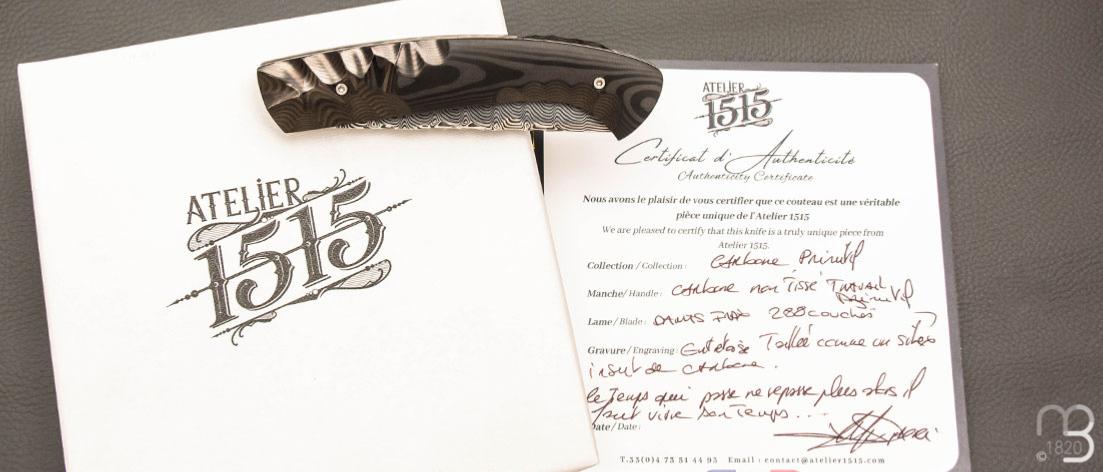 ATELIER
1515
ATELIER
1515
Certificat d'Authenticité
Authenticity Certificate
Nous avons le plaisir de vous certifier que ce couteau est une véritable
pièce unique de l'Atelier 1515
We are pleased to certify that this knife is a truly unique piece from
Atelier 1515.
Collection / Collection : Carbone Primitif
Manche/ Handle : Carbone non Tissé Travail
Primitif
Lame / Blade : DAMAS 288 couches
Gravure / Engraving : Taillée comme un silex
insert de carbone.
le Temps qui passe ne repasse plus alors il
faut vivre son Temps...
Date / Date :
T.33(0)4 73 51 44 93 Email : contact@atelier1515.com
©1820